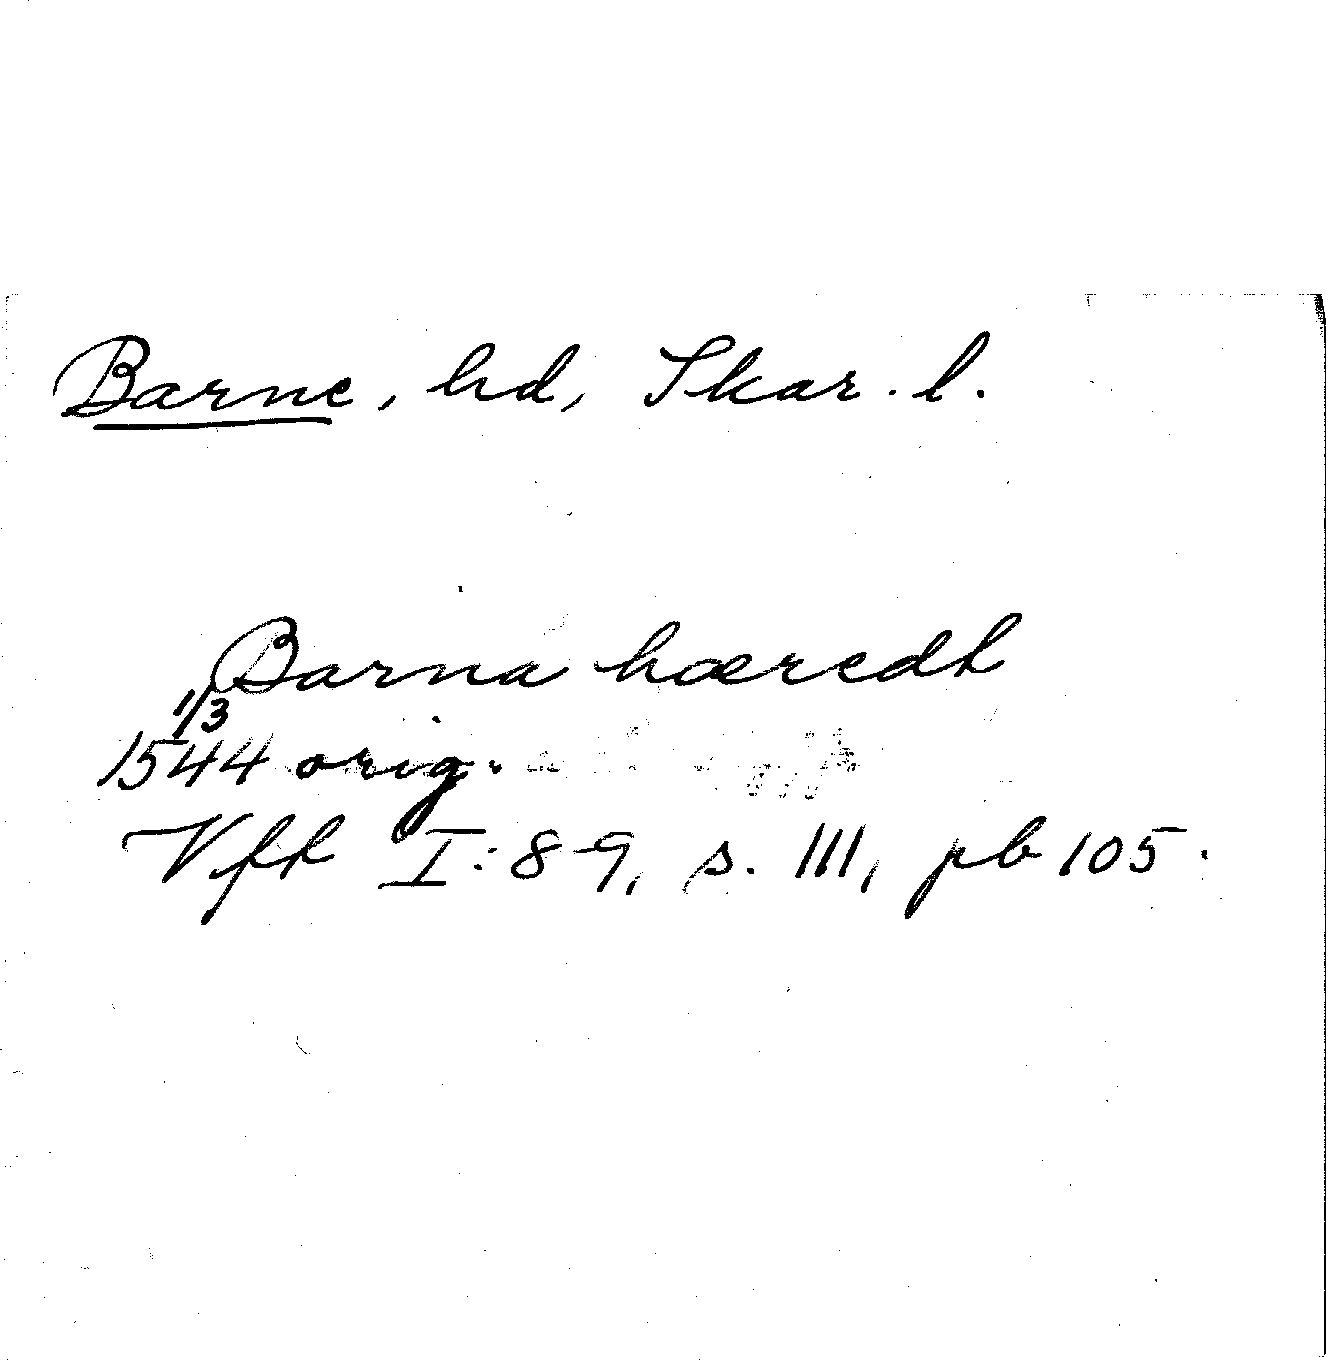 Barne, hd, Skar. l.
Barna hæredt
1/3
1544 orig.
Vft I:8-9, s. 111, pb 105.